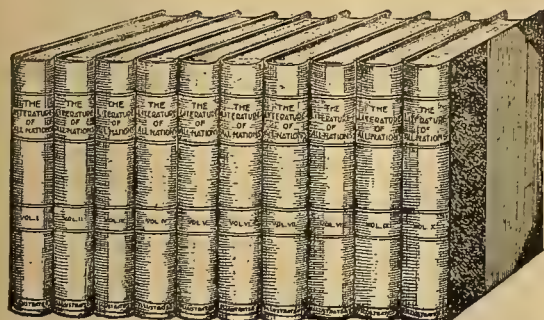 THE
LITERATURE
OF
ALL NATIONS
VOL. I
ILLUSTRATED
THE
LITERATURE
OF
ALL NATIONS
VOL. II
ILLUSTRATED
THE
LITERATURE
OF
ALL NATIONS
VOL. III
ILLUSTRATED
THE
LITERATURE
OF
ALL NATIONS
VOL. IV
ILLUSTRATED
THE
LITERATURE
OF
ALL NATIONS
VOL. V
ILLUSTRATED
THE
LITERATURE
OF
ALL NATIONS
VOL. VI
ILLUSTRATED
THE
LITERATURE
OF
ALL NATIONS
VOL. VII
ILLUSTRATED
THE
LITERATURE
OF
ALL NATIONS
VOL. VIII
ILLUSTRATED
THE
LITERATURE
OF
ALL NATIONS
VOL. IX
ILLUSTRATED
THE
LITERATURE
OF
ALL NATIONS
VOL. X
ILLUSTRATED